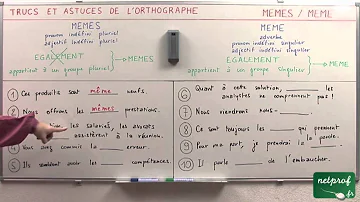 TRUCS ET ASTUCES DE L'ORTHOGRAPHE
MEMES / MEME
MEMES
pronom indéfini pluriel
adjectif indéfini pluriel
EGALEMENT
appartient à un groupe pluriel
MEMES
MEME
adverbe
pronom indéfini singulier
adjectif indéfini singulier
EGALEMENT
appartient à un groupe singulier
MEME
1 Ces produits sont même neufs.
2 Nous offrons les mêmes prestations.
les salariés, les avocats
assistèrent à la réunion.
commis la erreur.
5 Ils semblent avoir les compétences.
6 Quant à cette solution, les
analystes ne comprennent pas !
7 Nous viendrons nous-
8 Ce sont toujours les qui prennent
la parole.
9 Pour ma part, je prendrai la
10 Il parle de l'embaucher.
netprof
.fr